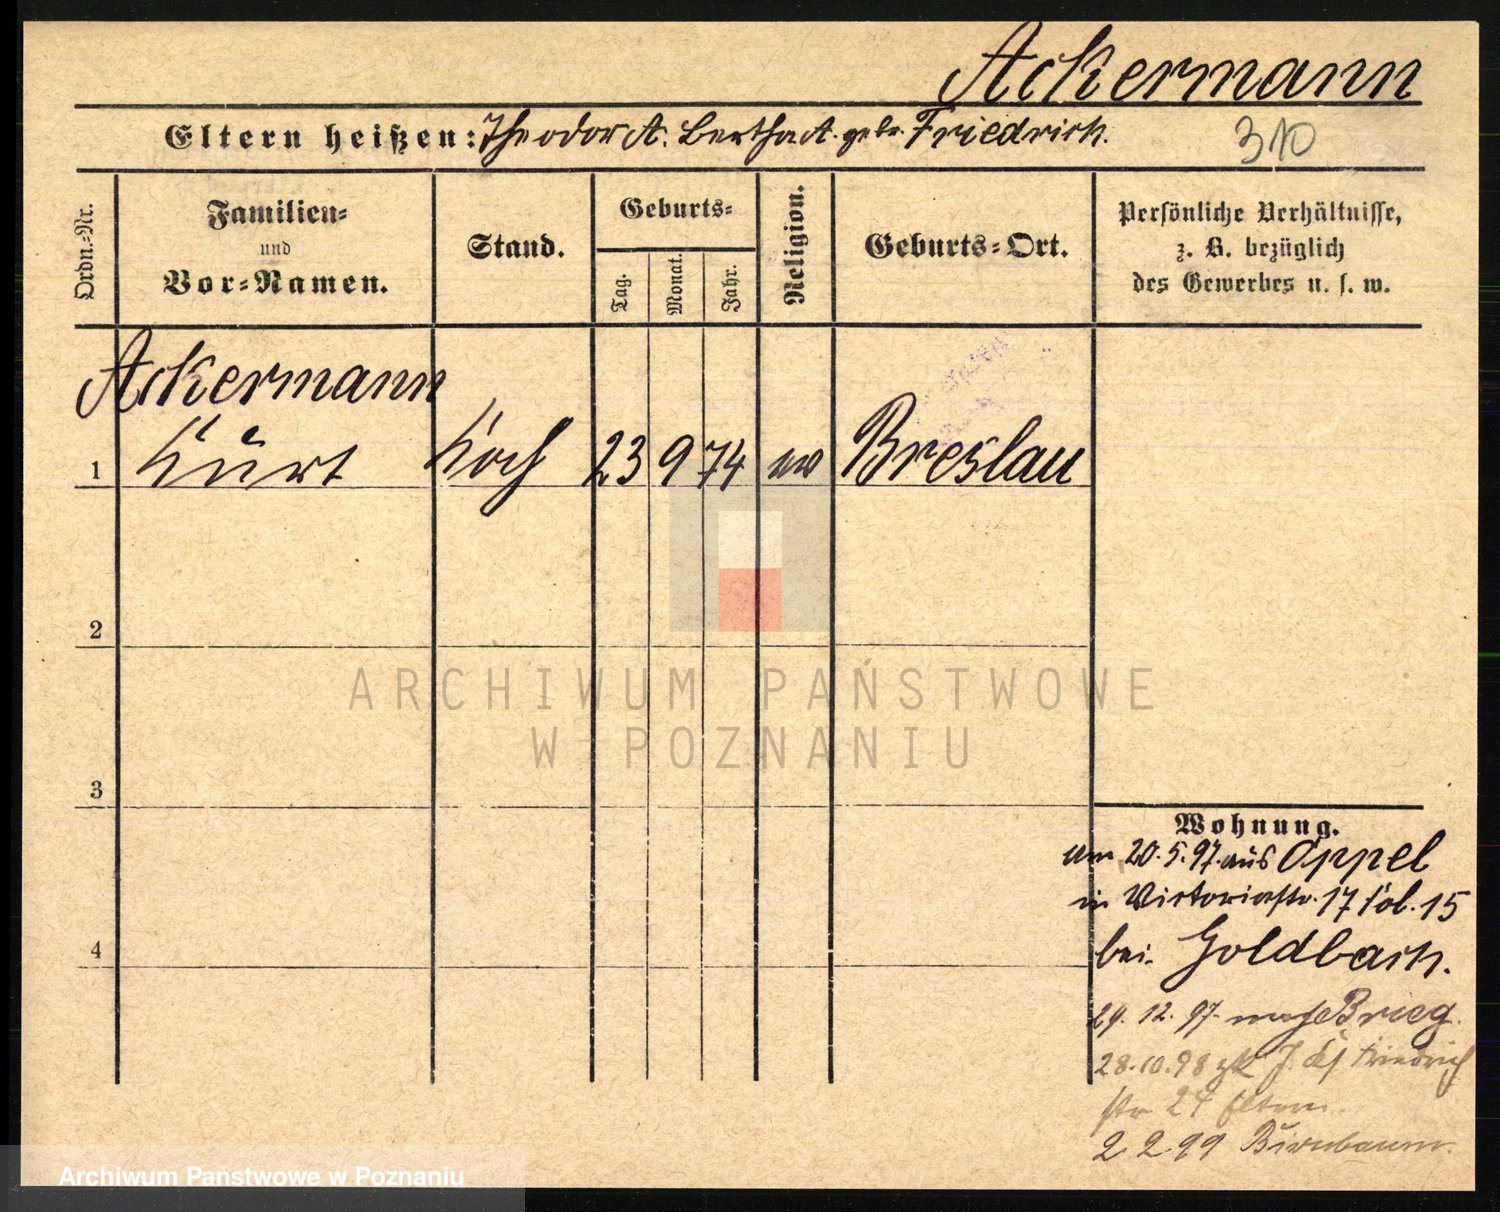 Ackermann
Eltern heißen: Theodor A. Bertha A. gebr. Friedrich.
310
Ordn.-Nr.
Familien-
und
Vor-Namen.
Stand.
Geburts-
Tag.
Monat.
Jahr.
Religion.
Geburts-Ort.
Persönliche Verhältnisse,
z. B. bezüglich
des Gewerbes u. s. w.
Ackermann
1 Kurt Koch 23 9 74 ev Breslau
2
ARCHIWUM PAŃSTWOWE
W POZNANIU
3
Wohnung.
am 20.5.97. aus Oppel
in Victoriastr. 17 15
4
bei Goldbach.
29.12.97. nach Brieg
28.10.98 zk Friedrich
str 24 Eltern
2 2 99 Birnbaum.
Archiwum Państwowe w Poznaniu